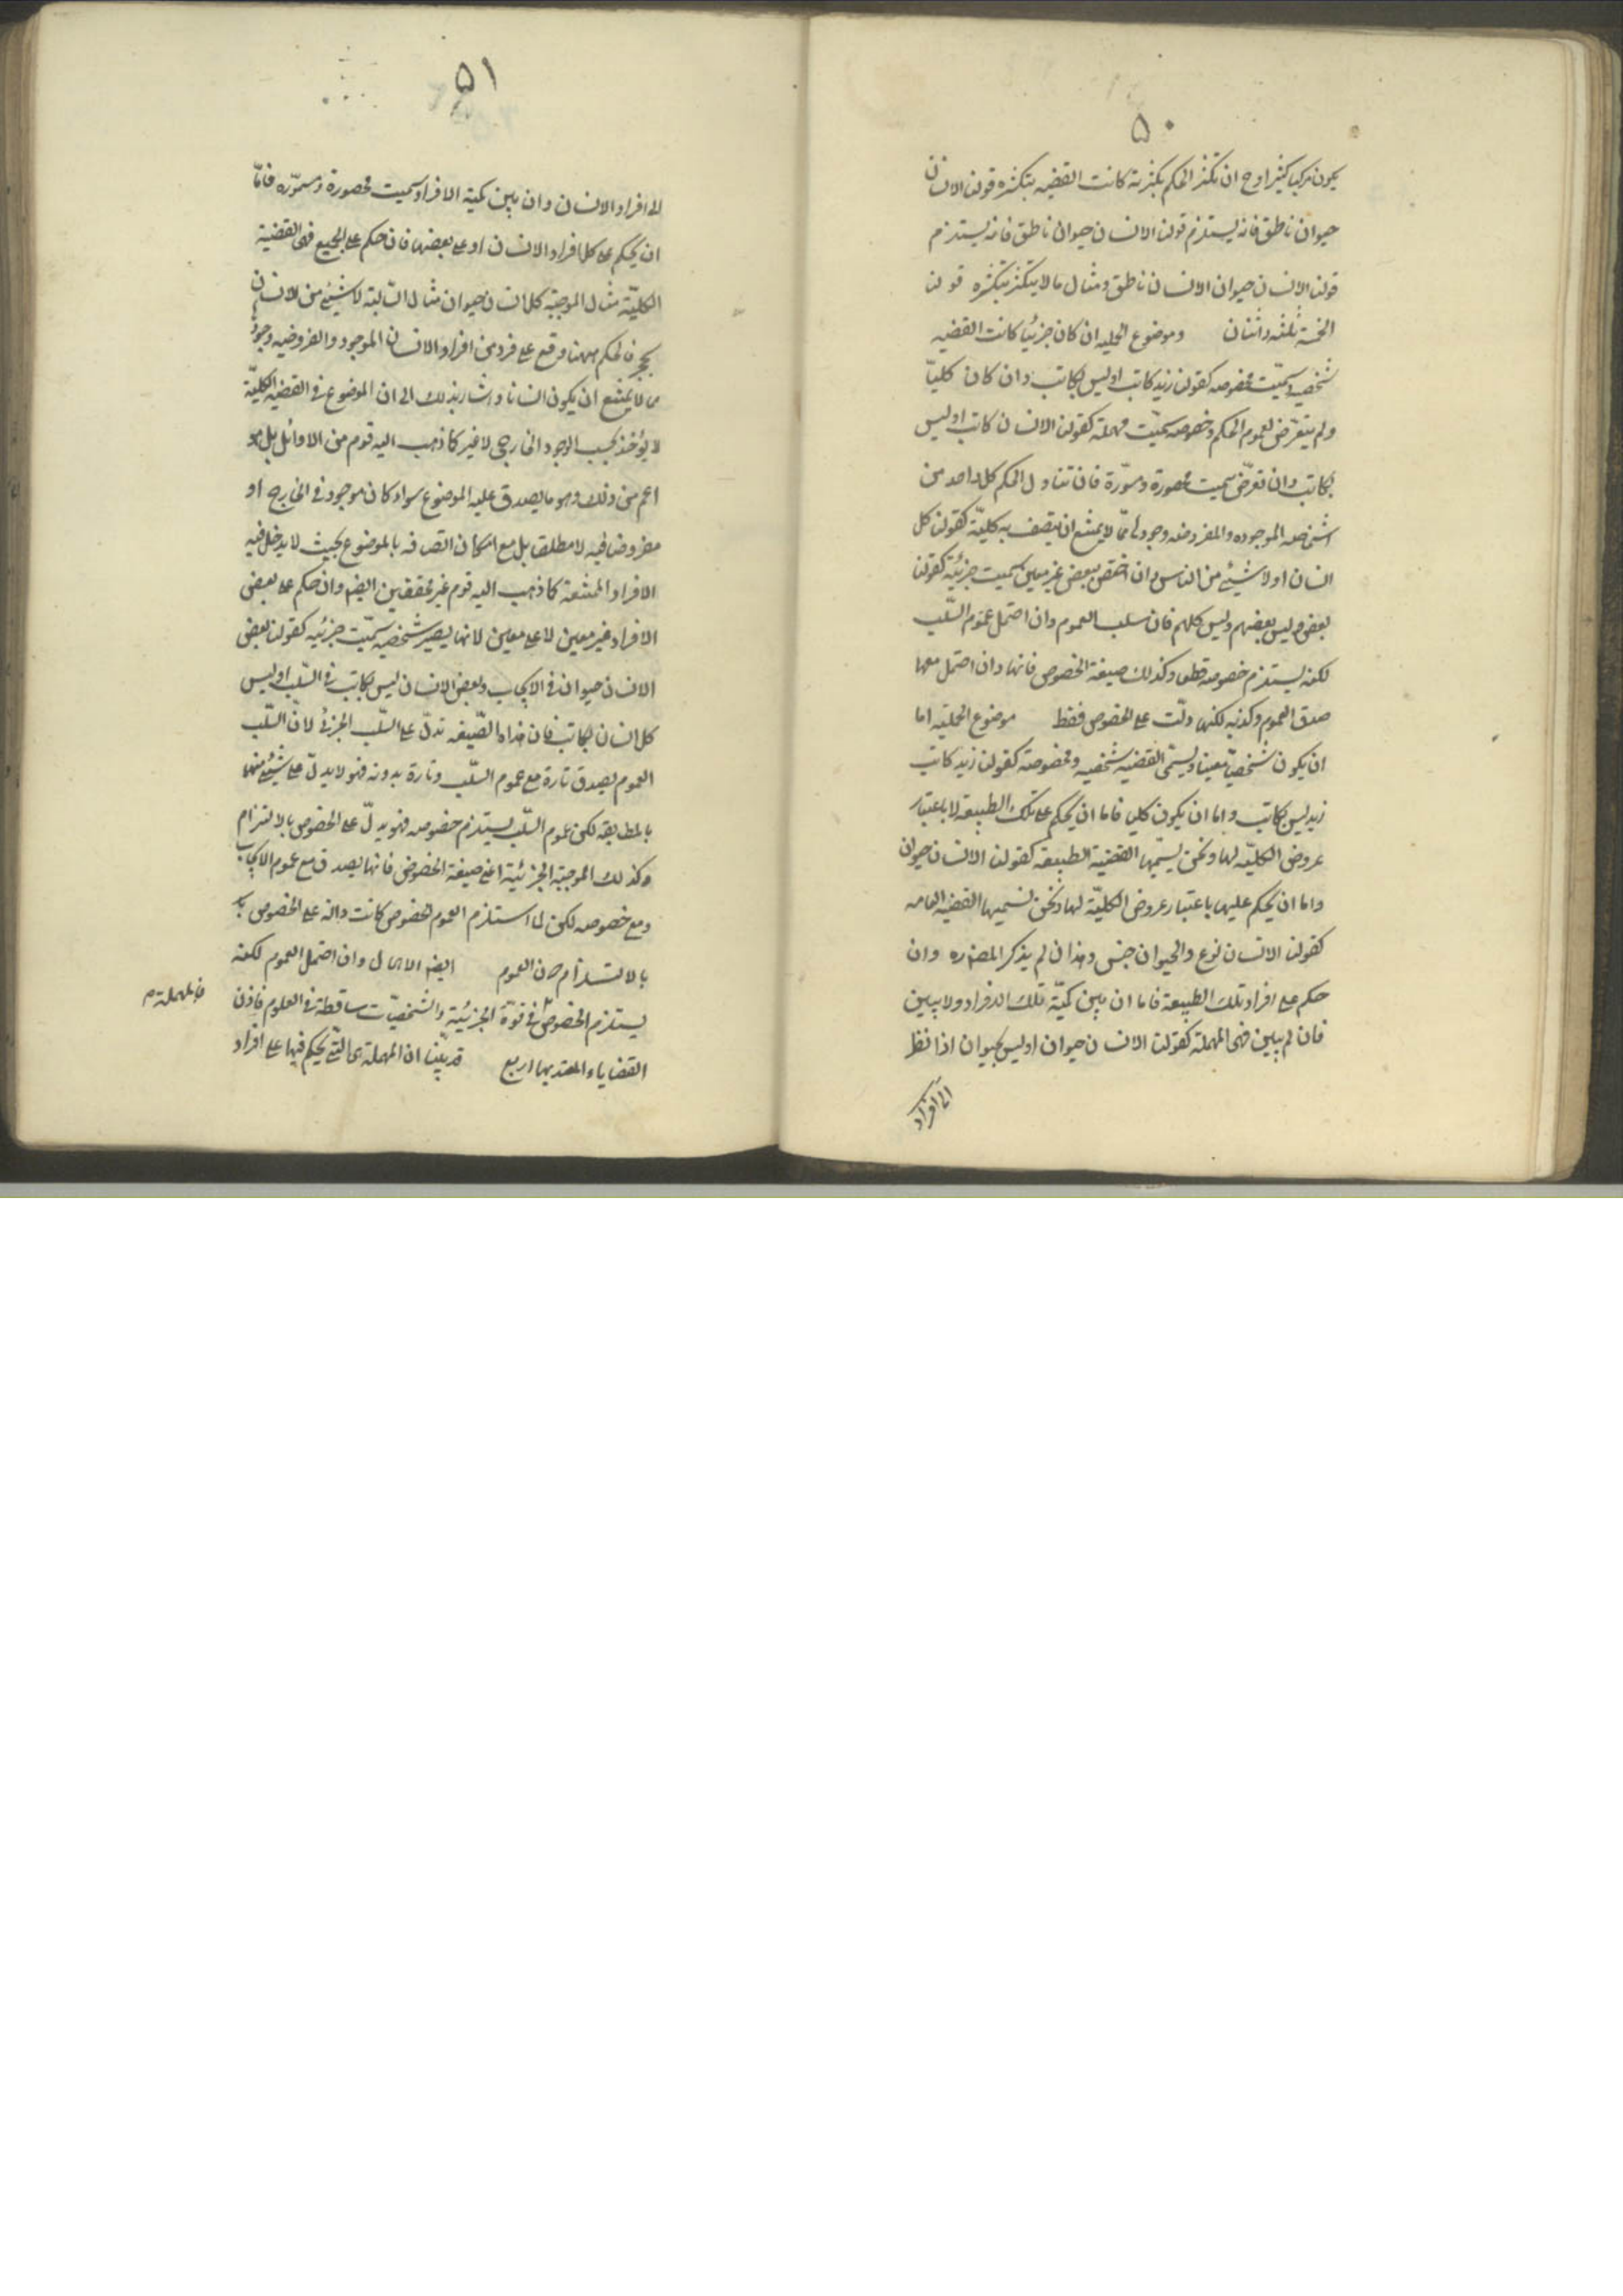 ٥٠
يكون تركيبا كثيرا وح ان تكثر الحكم بكثرته كانت القضيه بتكثره قولنا الانسان
حيوان ناطق فانه يستلزم قولنا الانسان حيوان ناطق فانه يستلزم
قولنا الانسان حيوان الانسان ناطق ومثال ما لا يتكثر بتكثره قولنا
الخمسة ثلثه واثنان وموضوع الحمليه ان كان جزئيا كانت القضيه
شخصيه وسميّت مخصوصه كقولنا زيد كاتب او ليس بكاتب وان كان كليّا
ولم يتعرّض لعموم الحكم وخصوصه سميّت مهملة كقولنا الانسان كاتب او ليس
بكاتب وان تعرّض سميت محصورة ومسوّرة فان تناول الحكم كل واحد من
اشخاصه الموجوده والمفروضه وجودها ممّا لا يمتنع ان يتصف به كليّة كقولنا كل
انسان او لا شيئ من الناس وان اختص ببعض غير معين سميت جزئيّة كقولنا
بعض وليس بعضهم وليس كلهم فان سلب العموم وان احتمل عموم السّلب
لكنه يستلزم خصوصه قطعا وكذلك صيغة الخصوص فانها وان احتمل معها
صدق العموم وكذبه لكنها دلّت على الخصوص فقط موضوع الحمليّه اما
ان يكون شخصيّا معينا ويسمّى القضيه شخصيه ومخصوصة كقولنا زيد كاتب
زيد ليس بكاتب واما ان يكون كليا فاما ان يحكم على تلك الطبيعه لا باعتبار
عروض الكليّه لها ونحن نسمّيها القضية الطبيعه كقولنا الانسان حيوان
واما ان يحكم عليها باعتبار عروض الكليّة لها ونحن نسميها القضيه العامه
كقولنا الانسان نوع والحيوان جنس وهذان لم يذكر المصنف ره وان
حكم على افراد تلك الطبيعة فاما ان يبين كميّة تلك الافراد ولا يبين
فان لم يبين فهى المهملة كقولنا الانسان حيوان او ليس بحيوان اذا نظر
الى افراد
٥١
الى افراد الانسان وان يبين كمية الافراد سميت محصورة ومسوّره فامّا
ان يحكم على كل افراد الانسان او على بعضها فان حكم على الجميع فهى القضية
الكليّة مثال الموجبة كل انسان حيوان مثال السّالبة لا شيئ من الانسان
بحجر فالحكم ههنا وقع على فرد من افراد الانسان الموجود والمفروضيه وجوده
مما لا يمتنع ان يكون انسانا واشار بذلك الى ان الموضوع فى القضيه الكليّة
لا يؤخذ بحسب الوجود الخارجى لا غير كما ذهب اليه قوم من الاوائل بل هو
اعم من ذلك وهو ما يصدق عليه الموضوع سواء كان موجود فى الخارج او
مفروضا فيه لا مطلقا بل مع امكان اتصافه بالموضوع بحيث لا يدخل فيه
الافراد الممتنعة كما ذهب اليه قوم غير محققين ايضا وان حكم على بعض
الافراد غير معين لا على معين لانها يصير شخصيه سمّيت جزئيه كقولنا بعض
الانسان حيوان فى الايجاب وبعض الانسان ليس بكاتب فى السّلب او ليس
كل انسان بكاتب فان هذه الصّيغه تدلّ على السّلب الجزئى لان السّلب
العموم يصدق تارة مع عموم السّلب وتارة بدونه فهو لا يدلّ على شيئ منهما
بالمطابقه لكن عموم السّلب يستلزم خصوصه فهو يدلّ على الخصوص بالالتزام
وكذلك الموجبة الجزئية اعنى صيغة الخصوص فانها يصدق مع عموم الايجاب
ومع خصوصه لكن لما استلزم العموم الخصوص كانت دالة على الخصوص
بالاستلزام من العموم ايضا الاهمال وان احتمل العموم لكنه
يستلزم الخصوص فى قوّة الجزئية والشخصيّات ساقطة فى العلوم فاذن
فالمهملة
القضاياء المعتد بها اربع قد بيّنا ان المهملة هى الّتى يحكم فيها على افراد